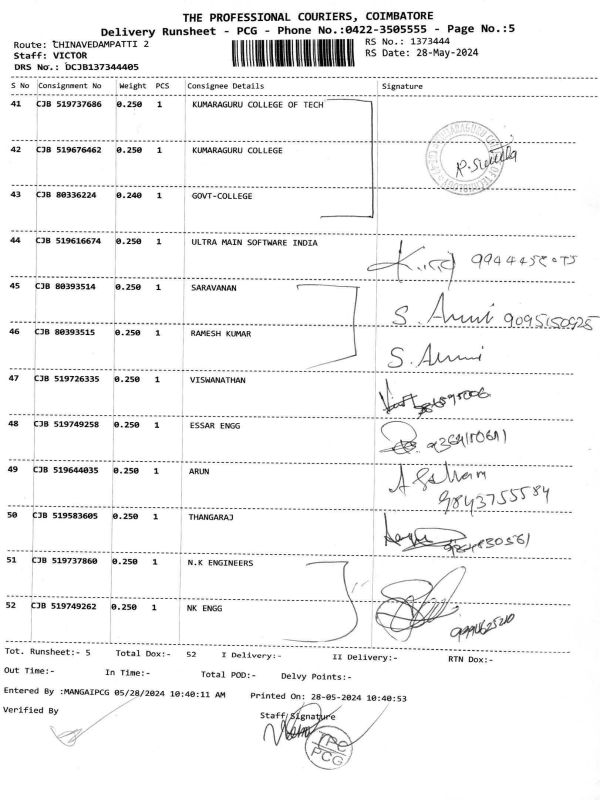 THE PROFESSIONAL COURIERS, COIMBATORE
Delivery Runsheet - PCG - Phone No.:0422-3505555 - Page No.:5
Route: CHINAVEDAMPATTI 2
RS No.: 1373444
Staff: VICTOR
RS Date: 28-May-2024
DRS No.: DCJB137344405
S No Consignment No Weight PCS Consignee Details Signature
41 CJB 519737686 0.250 1 KUMARAGURU COLLEGE OF TECH
42 CJB 519676462 0.250 1 KUMARAGURU COLLEGE
43 CJB 80336224 0.240 1 GOVT-COLLEGE
44 CJB 519616674 0.250 1 ULTRA MAIN SOFTWARE INDIA
45 CJB 80393514 0.250 1 SARAVANAN S. Ammi 9095150925
46 CJB 80393515 0.250 1 RAMESH KUMAR S. Ammi
47 CJB 519726335 0.250 1 VISWANATHAN
48 CJB 519749258 0.250 1 ESSAR ENGG
49 CJB 519644035 0.250 1 ARUN
9843755584
50 CJB 519583605 0.250 1 THANGARAJ
51 CJB 519737860 0.250 1 N.K ENGINEERS
52 CJB 519749262 0.250 1 NK ENGG
Tot. Runsheet:- 5 Total Dox:- 52 I Delivery:- II Delivery:- RTN Dox:-
Out Time:- In Time:- Total POD:- Delvy Points:-
Entered By :MANGAIPCG 05/28/2024 10:40:11 AM Printed On: 28-05-2024 10:40:53
Verified By
Staff Signature
TPC
PCG